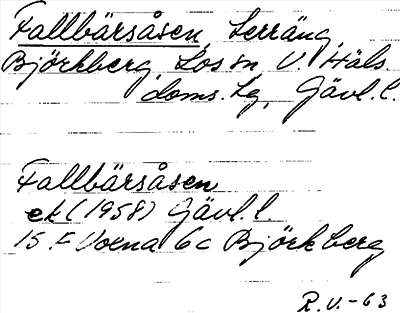 Fallbärsåsen, terräng,
Björkberg, Los sn, V. Häls.
doms. tg, Gävl. l.
Fallbärsåsen
ek (1958) Gävl. l.
15 F Voxna 6c Björkberg
R.V.-63